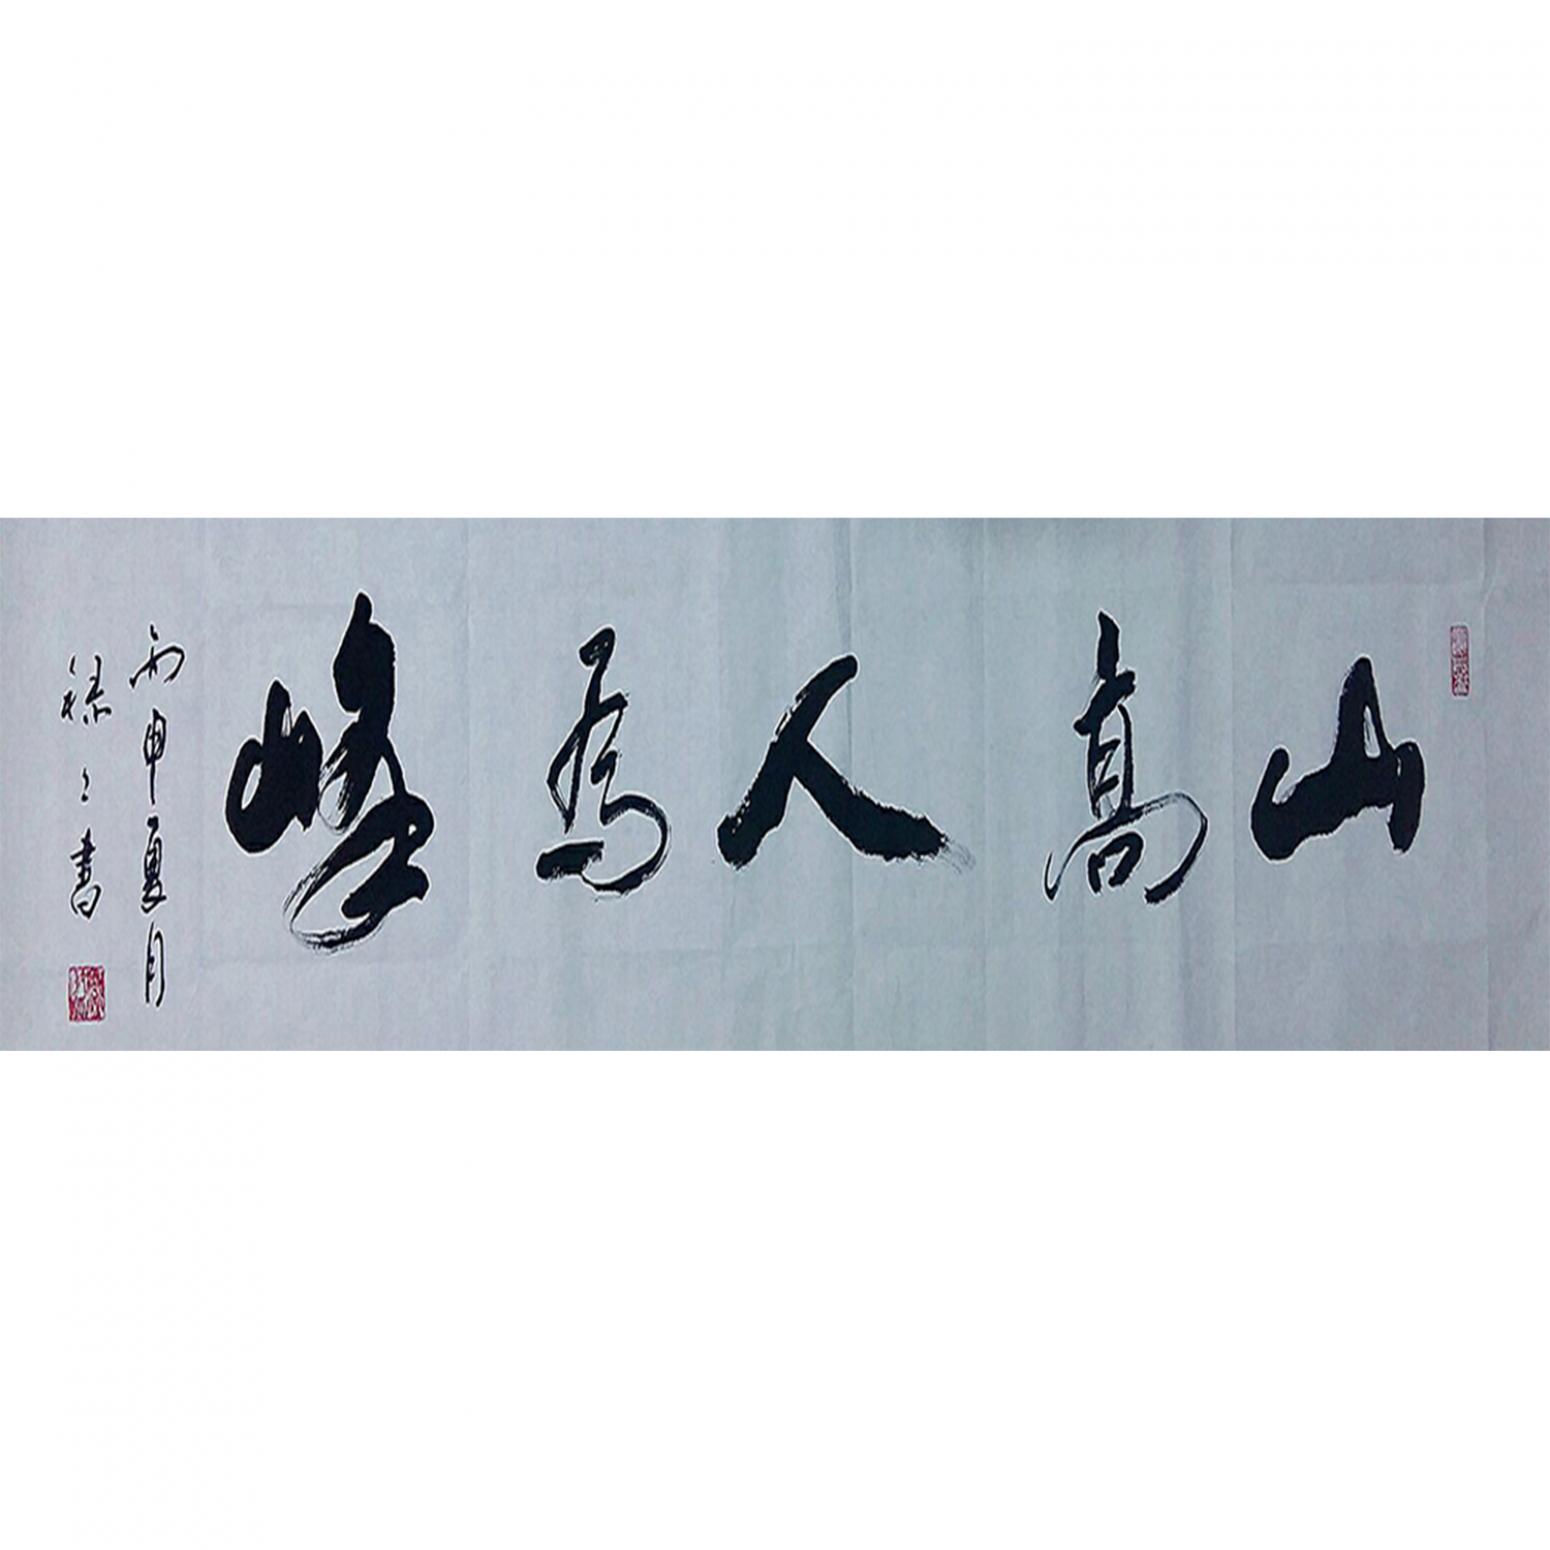 山高人爲峰
丙申夏月
禄之書